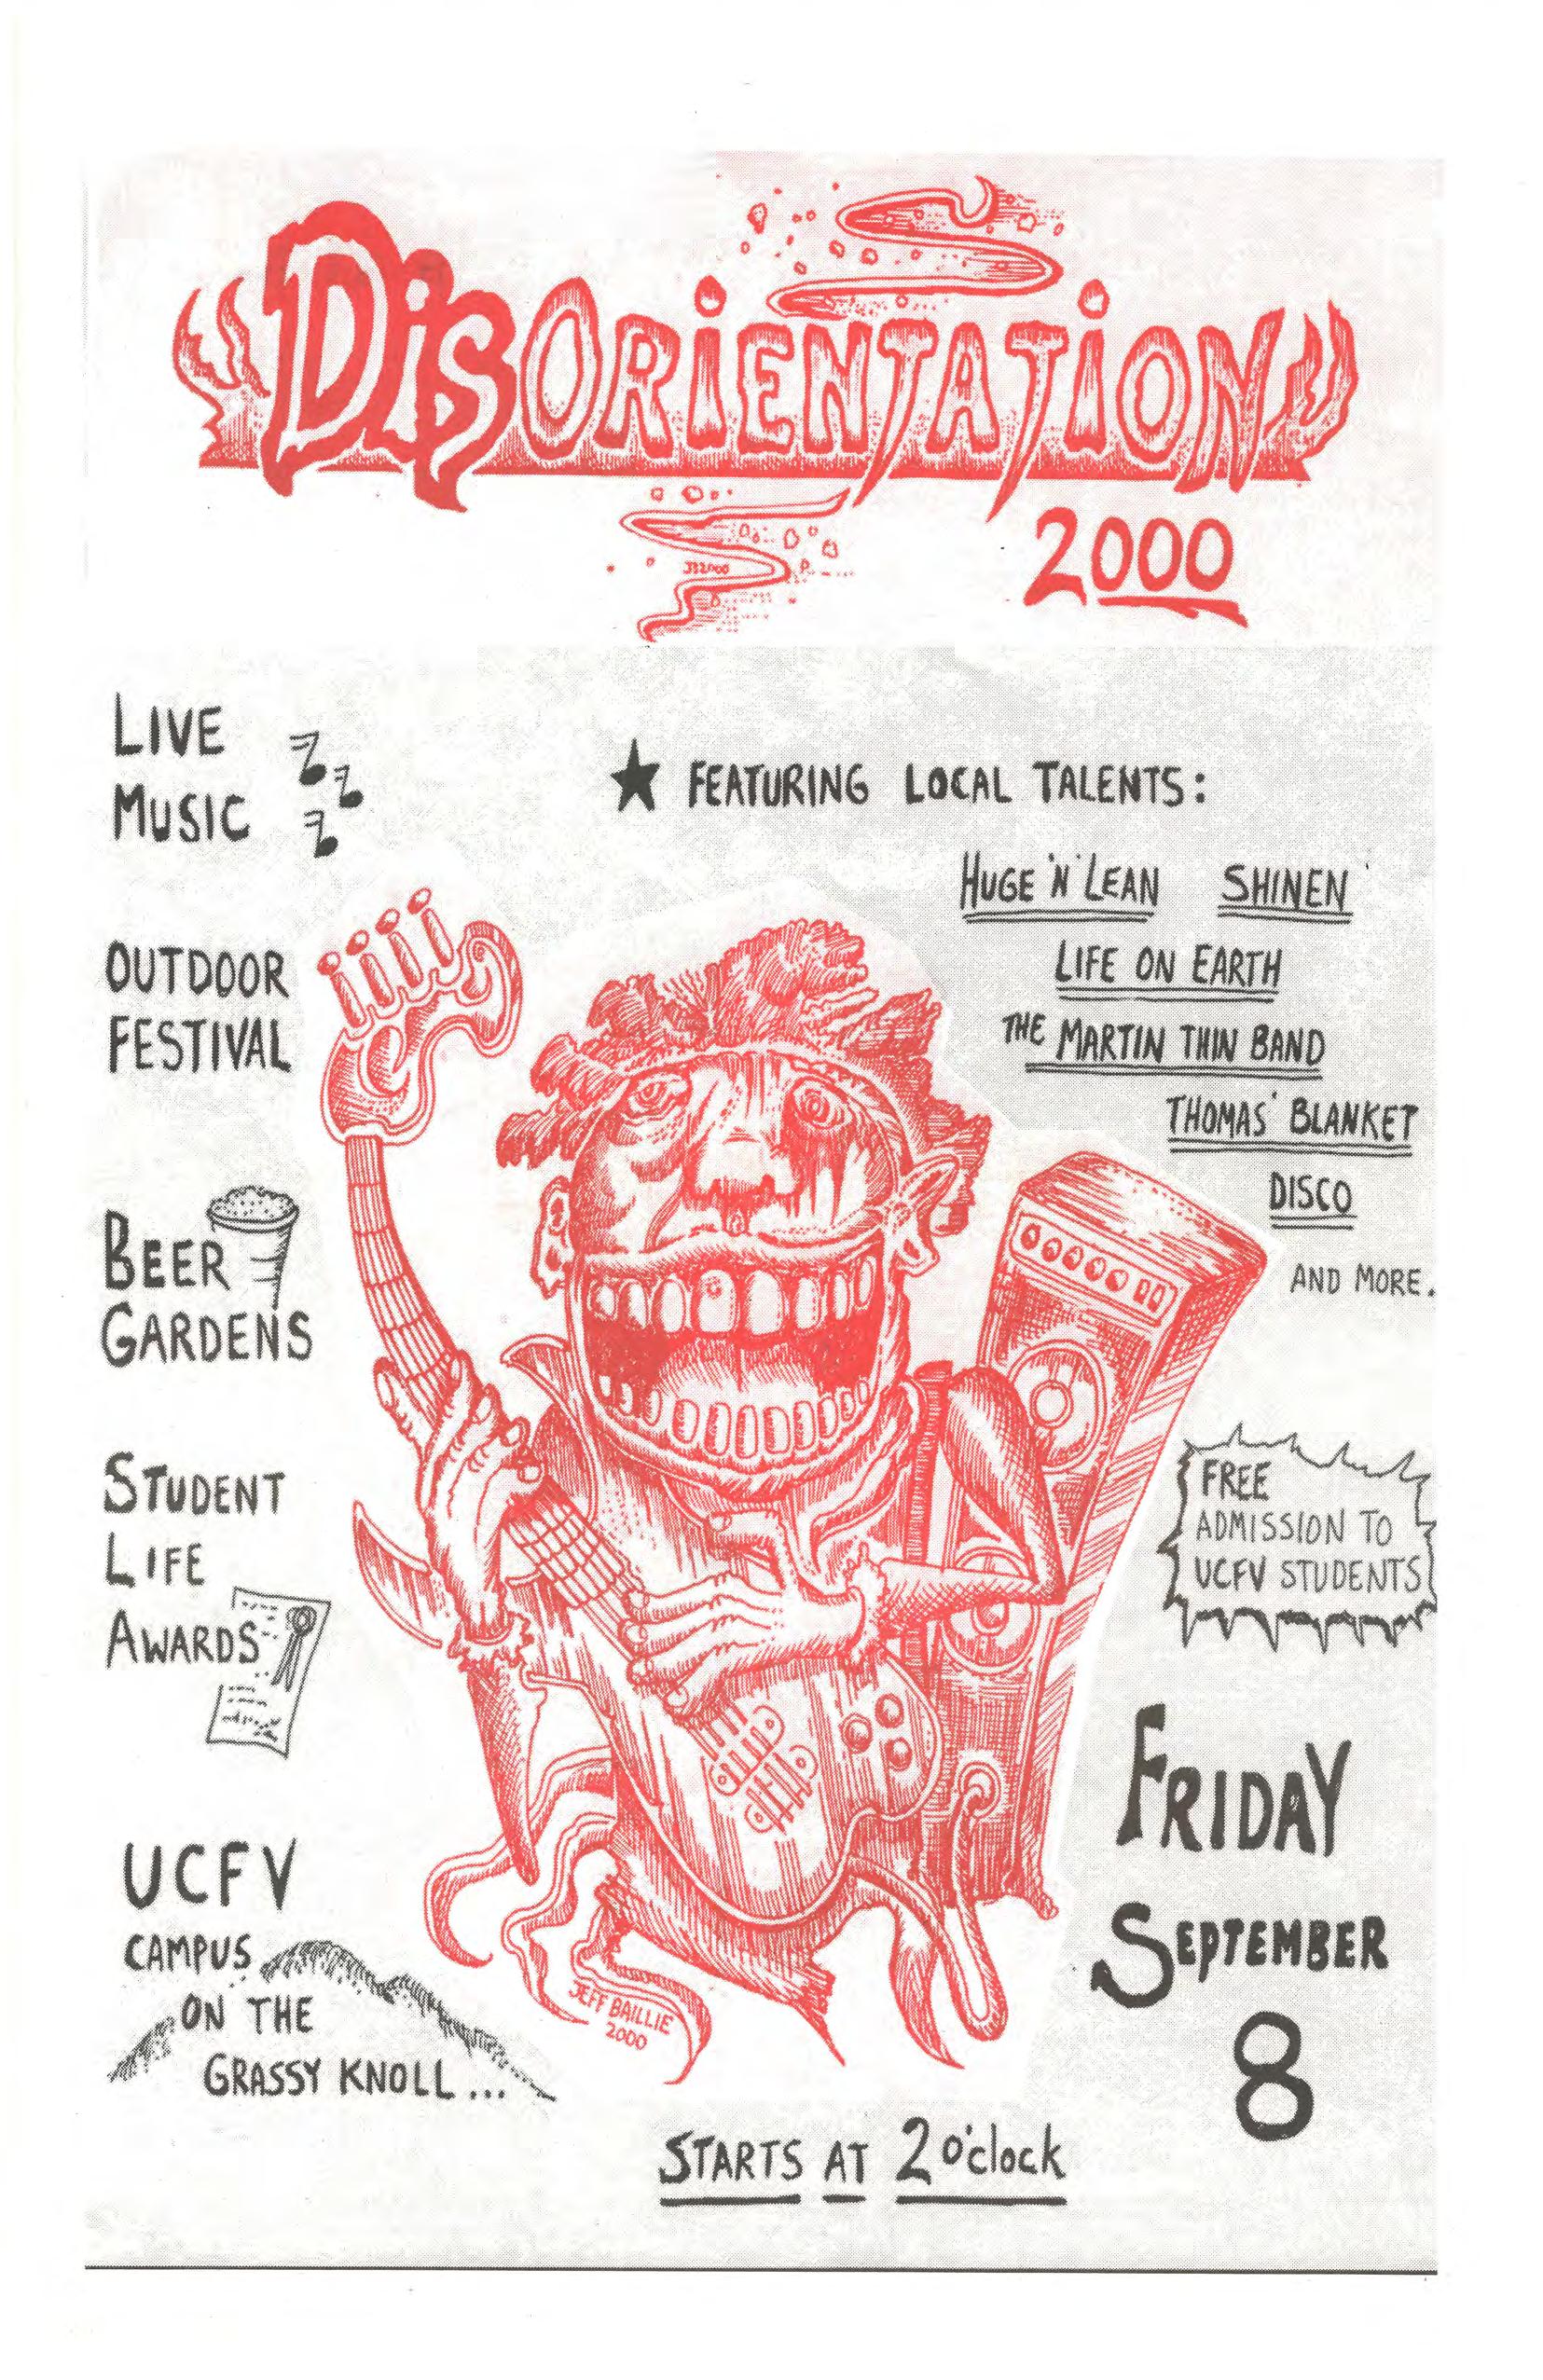 DisORiENTATiON
2000
JB2000
LIVE
MUSIC
★ FEATURING LOCAL TALENTS:
HUGE 'N' LEAN SHINEN
LIFE ON EARTH
THE MARTIN THIN BAND
THOMAS' BLANKET
DISCO
AND MORE.
OUTDOOR
FESTIVAL
BEER
GARDENS
STUDENT
LIFE
AWARDS
FREE
ADMISSION TO
UCFV STUDENTS
UCFV
CAMPUS
ON THE
GRASSY KNOLL...
JEFF BAILLIE
2000
FRIDAY
SEPTEMBER
8
STARTS AT 2 o'clock